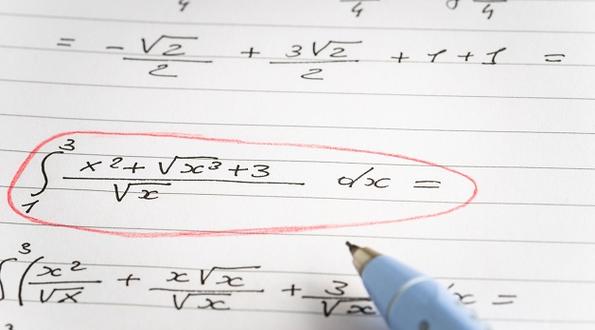 4 4 4
= - √2/2 + 3√2/2 + 1 + 1 =
∫₁³ (x² + √x³ + 3)/√x dx =
∫³ (x²/√x + x√x/√x + 3/√x x =